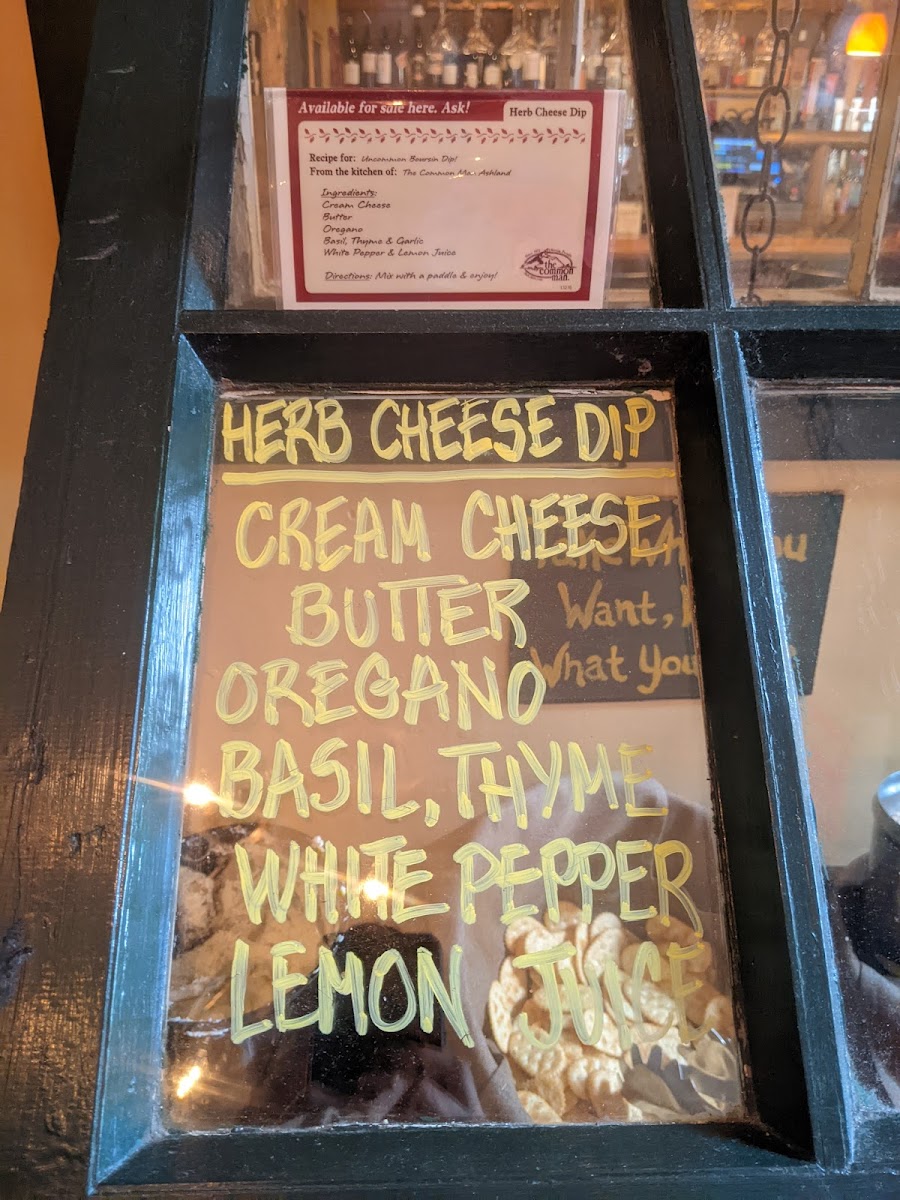 Available for sale here. Ask!
Herb Cheese Dip
Recipe for: Uncommon Boursin Dip!
From the kitchen of: The Common Man Ashland
Ingredients:
Cream Cheese
Butter
Oregano
Basil, Thyme & Garlic
White Pepper & Lemon Juice
Directions: Mix with a paddle & enjoy!
the
common
man
HERB CHEESE DIP
CREAM CHEESE
BUTTER
OREGANO
BASIL, THYME
WHITE PEPPER
LEMON JUICE
Want,
What you